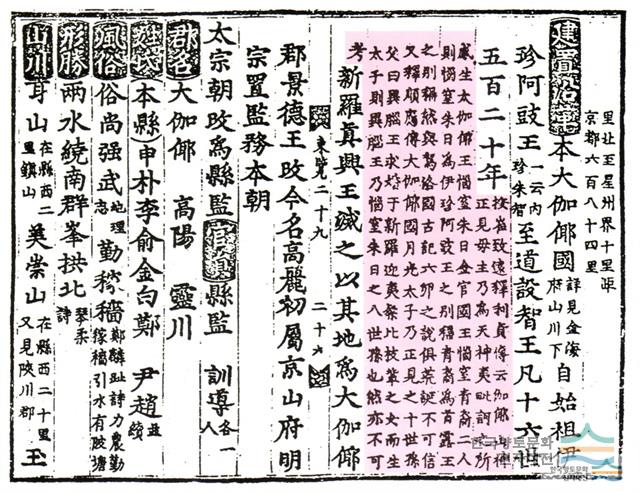 里北至星州界十里距
京都六百八十四里
建置沿革本大伽倻國詳見金海府山川下自始祖伊
珍阿豉王一云內珍朱智至道設智王凡十六世
五百二十年按崔致遠釋利貞傳云伽倻山神
正見母主乃爲天神夷毗訶所
感生大伽倻王惱窒朱日金官國王惱窒青裔二人
則惱窒朱日爲伊珍阿豉王之別稱青裔爲首露王
之別稱然與駕洛國古記六卵之說俱荒誕不可信
又釋順應傳大伽倻國月光太子乃正見之十世孫
父曰異腦王求婚于新羅迎夷粲比枝輩之女而生
太子則異腦王乃惱窒朱日之八世孫也然亦不可
考新羅眞興王滅之以其地爲大伽倻
東覽二十九 二十六
郡景德王改今名高麗初屬京山府明
宗置監務本朝
太宗朝改爲縣監官員縣監 訓導各一人
郡名大伽倻 高陽 靈川
姓氏本縣申朴李俞金白鄭 尹趙並續
風俗俗尚强武地理志勤稼穡鄭麟趾詩力農勤稼穡引水有陂塘
形勝兩水繞南群峯拱北琴柔詩
山川耳山在縣西二里鎭山美崇山在縣西二十里又見陜川郡玉
한국향토문화